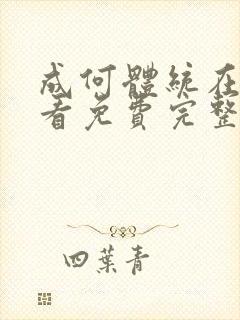 成何體統在
看免費完整
四葉青